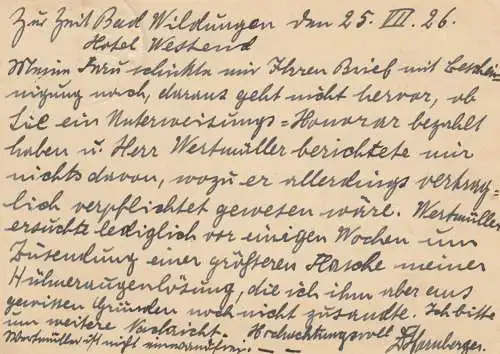 Zur Zeit Bad Wildungen den 25. VII. 26.
Hotel Westend
Meine Frau schickte mir Ihren Brief mit Beschei-
nigung nach, daraus geht nicht hervor, ob
Sie ein Unterweisungs=Honorar bezahlt
haben u. Herr Wertmüller berichtete mir
nichts davon, wozu er allerdings vertrag=
lich verpflichtet gewesen wäre. Wertmüller
ersuchte lediglich vor einigen Wochen um
Zusendung einer größeren Flasche meiner
Hühneraugenlösung, die ich ihm aber aus
gewissen Gründen noch nicht zusandte. Ich bitte
um weitere Nachricht. Hochachtungsvoll
Wertmüller ist nicht einwandfrei. — —